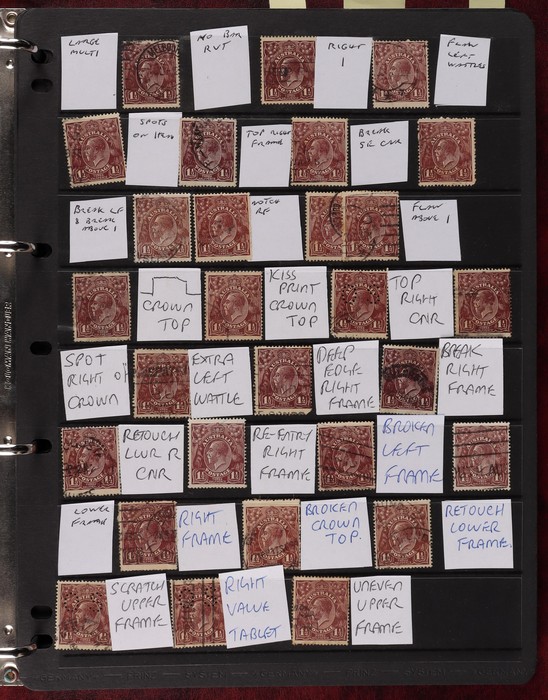 LARGE
MULTI
NO BAR
RVT
RIGHT
1
FLAW
LEFT
WATTLE
SPOTS
TOP RIGHT
FRAME
BREAK
SE CNR
BREAK LF
& BREAK
ABOVE 1
NOTCH
RF
FLAW
ABOVE 1
CROWN
TOP
KISS
PRINT
CROWN
TOP
TOP
RIGHT
CNR
SPOT
RIGHT OF
CROWN
EXTRA
LEFT
WATTLE
DEEP
EDGE
RIGHT
FRAME
BREAK
RIGHT
FRAME
RETOUCH
LWR R
CNR
RE-ENTRY
RIGHT
FRAME
BROKEN
LEFT
FRAME
LOWER
FRAME
RIGHT
FRAME
BROKEN
CROWN
TOP.
RETOUCH
LOWER
FRAME.
SCRATCH
UPPER
FRAME
RIGHT
VALUE
TABLET
UNEVEN
UPPER
FRAME